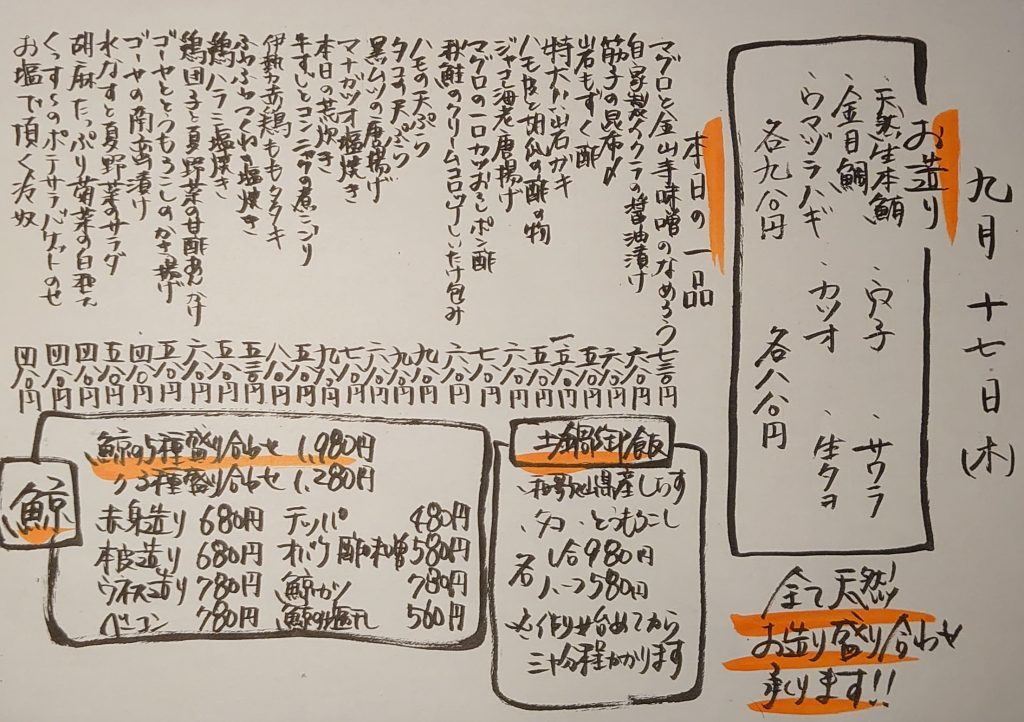 九月十七日(木)
お造り
・天然生本鮪
・金目鯛
・ウマヅラハギ
各九八〇円
・穴子
・カツオ
・サワラ
・生タコ
各八八〇円
全て天然!!
お造り盛り合わせ
承ります!!
本日の一品
マグロと金山寺味噌のなめろう 七三〇円
自家製イクラの醤油漬け 六八〇円
筋子の昆布〆 六八〇円
岩もずく酢 五八〇円
特大 岩ガキ
ハモ皮と胡瓜の酢の物 五八〇円
ジャコ海老唐揚げ 六八〇円
マグロの一口カツおろしポン酢 七八〇円
秋鮭のクリームコロッケしいたけ包み 六八〇円
ハモの天ぷら 九八〇円
タコの天ぷら 九八〇円
黒ムツの唐揚げ 六八〇円
マナガツオ塩焼き 七八〇円
本日の荒炊き 九八〇円
牛すじとコンニャク煮こごり 五八〇円
伊勢赤鶏ももタタキ 八八〇円
ふわふわつくね塩焼き 五三〇円
鶏ハラミ塩焼き 五八〇円
鶏団子と夏野菜の甘酢あんかけ 六八〇円
ゴーヤととうもろこしのかき揚げ 五八〇円
ゴーヤの南蛮漬け 四八〇円
水なすと夏野菜のサラダ 五八〇円
胡麻たっぷり菊菜の白和え 四八〇円
くんすぃのポテサラバゲットのせ 四八〇円
お塩で頂く冷奴 四八〇円
土鍋御飯
・和歌山県産しらす
・タコ・とうもろこし
各 一合980円
ハーフ580円
※作り始めてから
三十分程かかります
鯨
鯨の5種盛り合わせ 1,980円
〃3種盛り合わせ 1,280円
赤身造り 680円
本皮造り 680円
ウネス造り 780円
ベーコン 780円
テッパ 480円
オバケ酢味噌 580円
鯨カツ 780円
鯨の塩タレ 560円